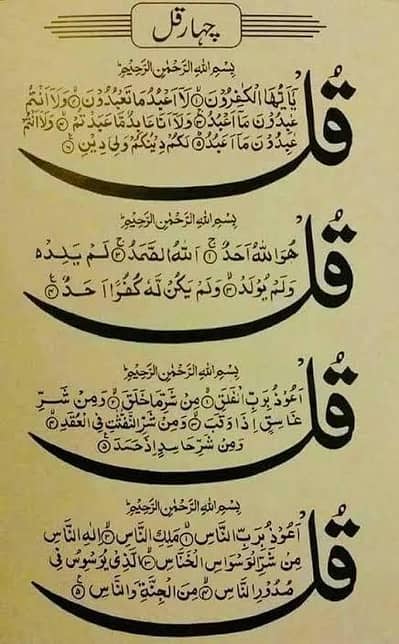 چہار قل
بِسْمِ اللهِ الرَّحْمٰنِ الرَّحِيْمِ
قُلْ
يٰاَيُّهَا الْكٰفِرُوْنَ ۝١ لَآ اَعْبُدُ مَا تَعْبُدُوْنَ ۝٢ وَلَآ اَنْتُمْ
عٰبِدُوْنَ مَآ اَعْبُدُ ۝٣ وَلَآ اَنَا عَابِدٌ مَّا عَبَدْتُّمْ ۝٤ وَلَآ اَنْتُمْ
عٰبِدُوْنَ مَآ اَعْبُدُ ۝٥ لَكُمْ دِيْنُكُمْ وَلِيَ دِيْنِ ۝٦
بِسْمِ اللهِ الرَّحْمٰنِ الرَّحِيْمِ
قُلْ
هُوَ اللّٰهُ اَحَدٌ ۝١ اَللّٰهُ الصَّمَدُ ۝٢ لَمْ يَلِدْ ە
وَلَمْ يُوْلَدْ ۝٣ وَلَمْ يَكُنْ لَّهٗ كُفُوًا اَحَدٌ ۝٤
بِسْمِ اللهِ الرَّحْمٰنِ الرَّحِيْمِ
قُلْ
اَعُوْذُ بِرَبِّ الْفَلَقِ ۝١ مِنْ شَرِّ مَا خَلَقَ ۝٢ وَمِنْ شَرِّ
غَاسِقٍ اِذَا وَقَبَ ۝٣ وَمِنْ شَرِّ النَّفّٰثٰتِ فِي الْعُقَدِ ۝٤
وَمِنْ شَرِّ حَاسِدٍ اِذَا حَسَدَ ۝٥
بِسْمِ اللهِ الرَّحْمٰنِ الرَّحِيْمِ
قُلْ
اَعُوْذُ بِرَبِّ النَّاسِ ۝١ مَلِكِ النَّاسِ ۝٢ اِلٰهِ النَّاسِ
مِنْ شَرِّ الْوَسْوَاسِ الْخَنَّاسِ ۝٣ الَّذِيْ يُوَسْوِسُ فِيْ
صُدُوْرِ النَّاسِ ۝٤ مِنَ الْجِنَّةِ وَالنَّاسِ ۝٥